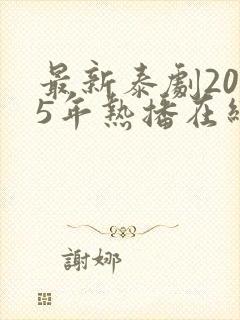 最新泰劇20
5年熱播在線
謝娜